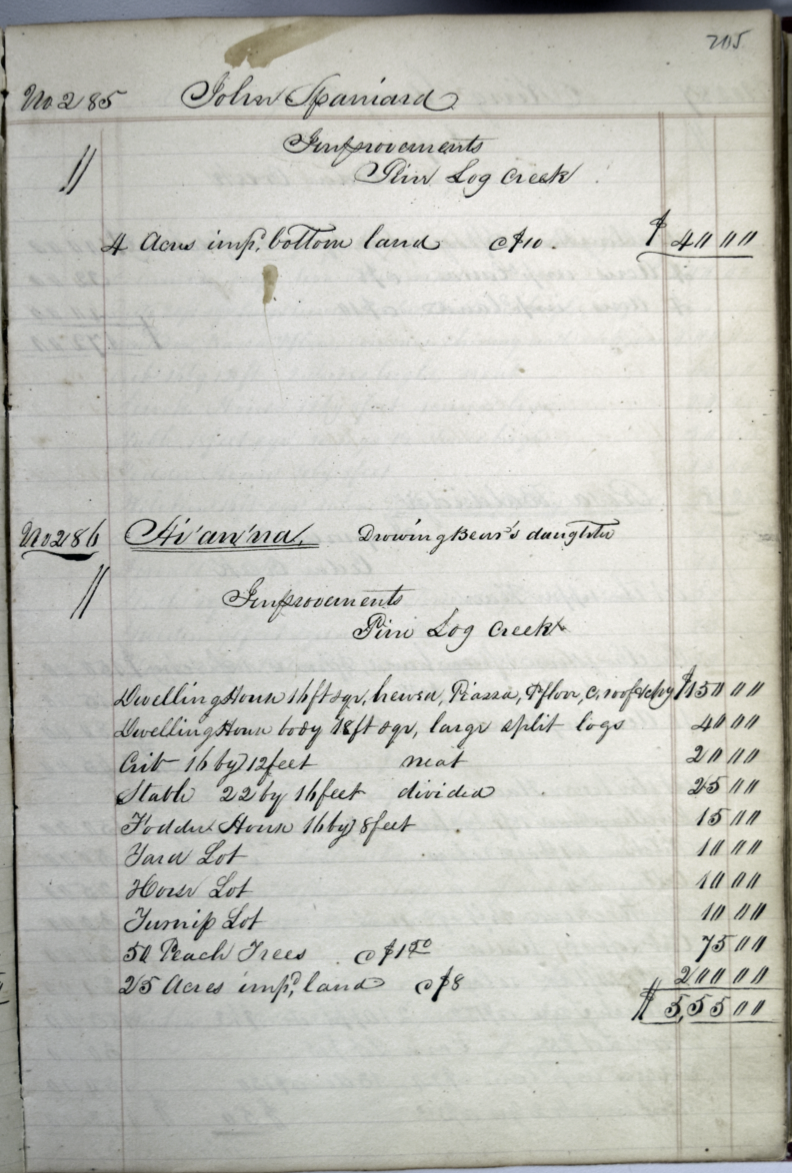 205
No 285 John Spaniard
" Improvements
Pine Log Creek
4 Acres imp.d bottom land @ $10. $40 00
No 286 Ai'an'na, Drowning Bear's daughter
" Improvements
Pine Log Creek
Dwelling House 16 ft sqr, hewed, Piazza, P. floor, C. roof & chy $150 00
Dwelling House body 18 ft sqr, large split logs 40 00
Crib 16 by 12 feet neat 20 00
Stable 22 by 16 feet divided 25 00
Fodder House 16 by 8 feet 15 00
Yard Lot 10 00
Horse Lot 10 00
Turnip Lot 10 00
50 Peach Trees @ $1.50 75 00
25 Acres imp.d land @ $8 200 00
$555 00